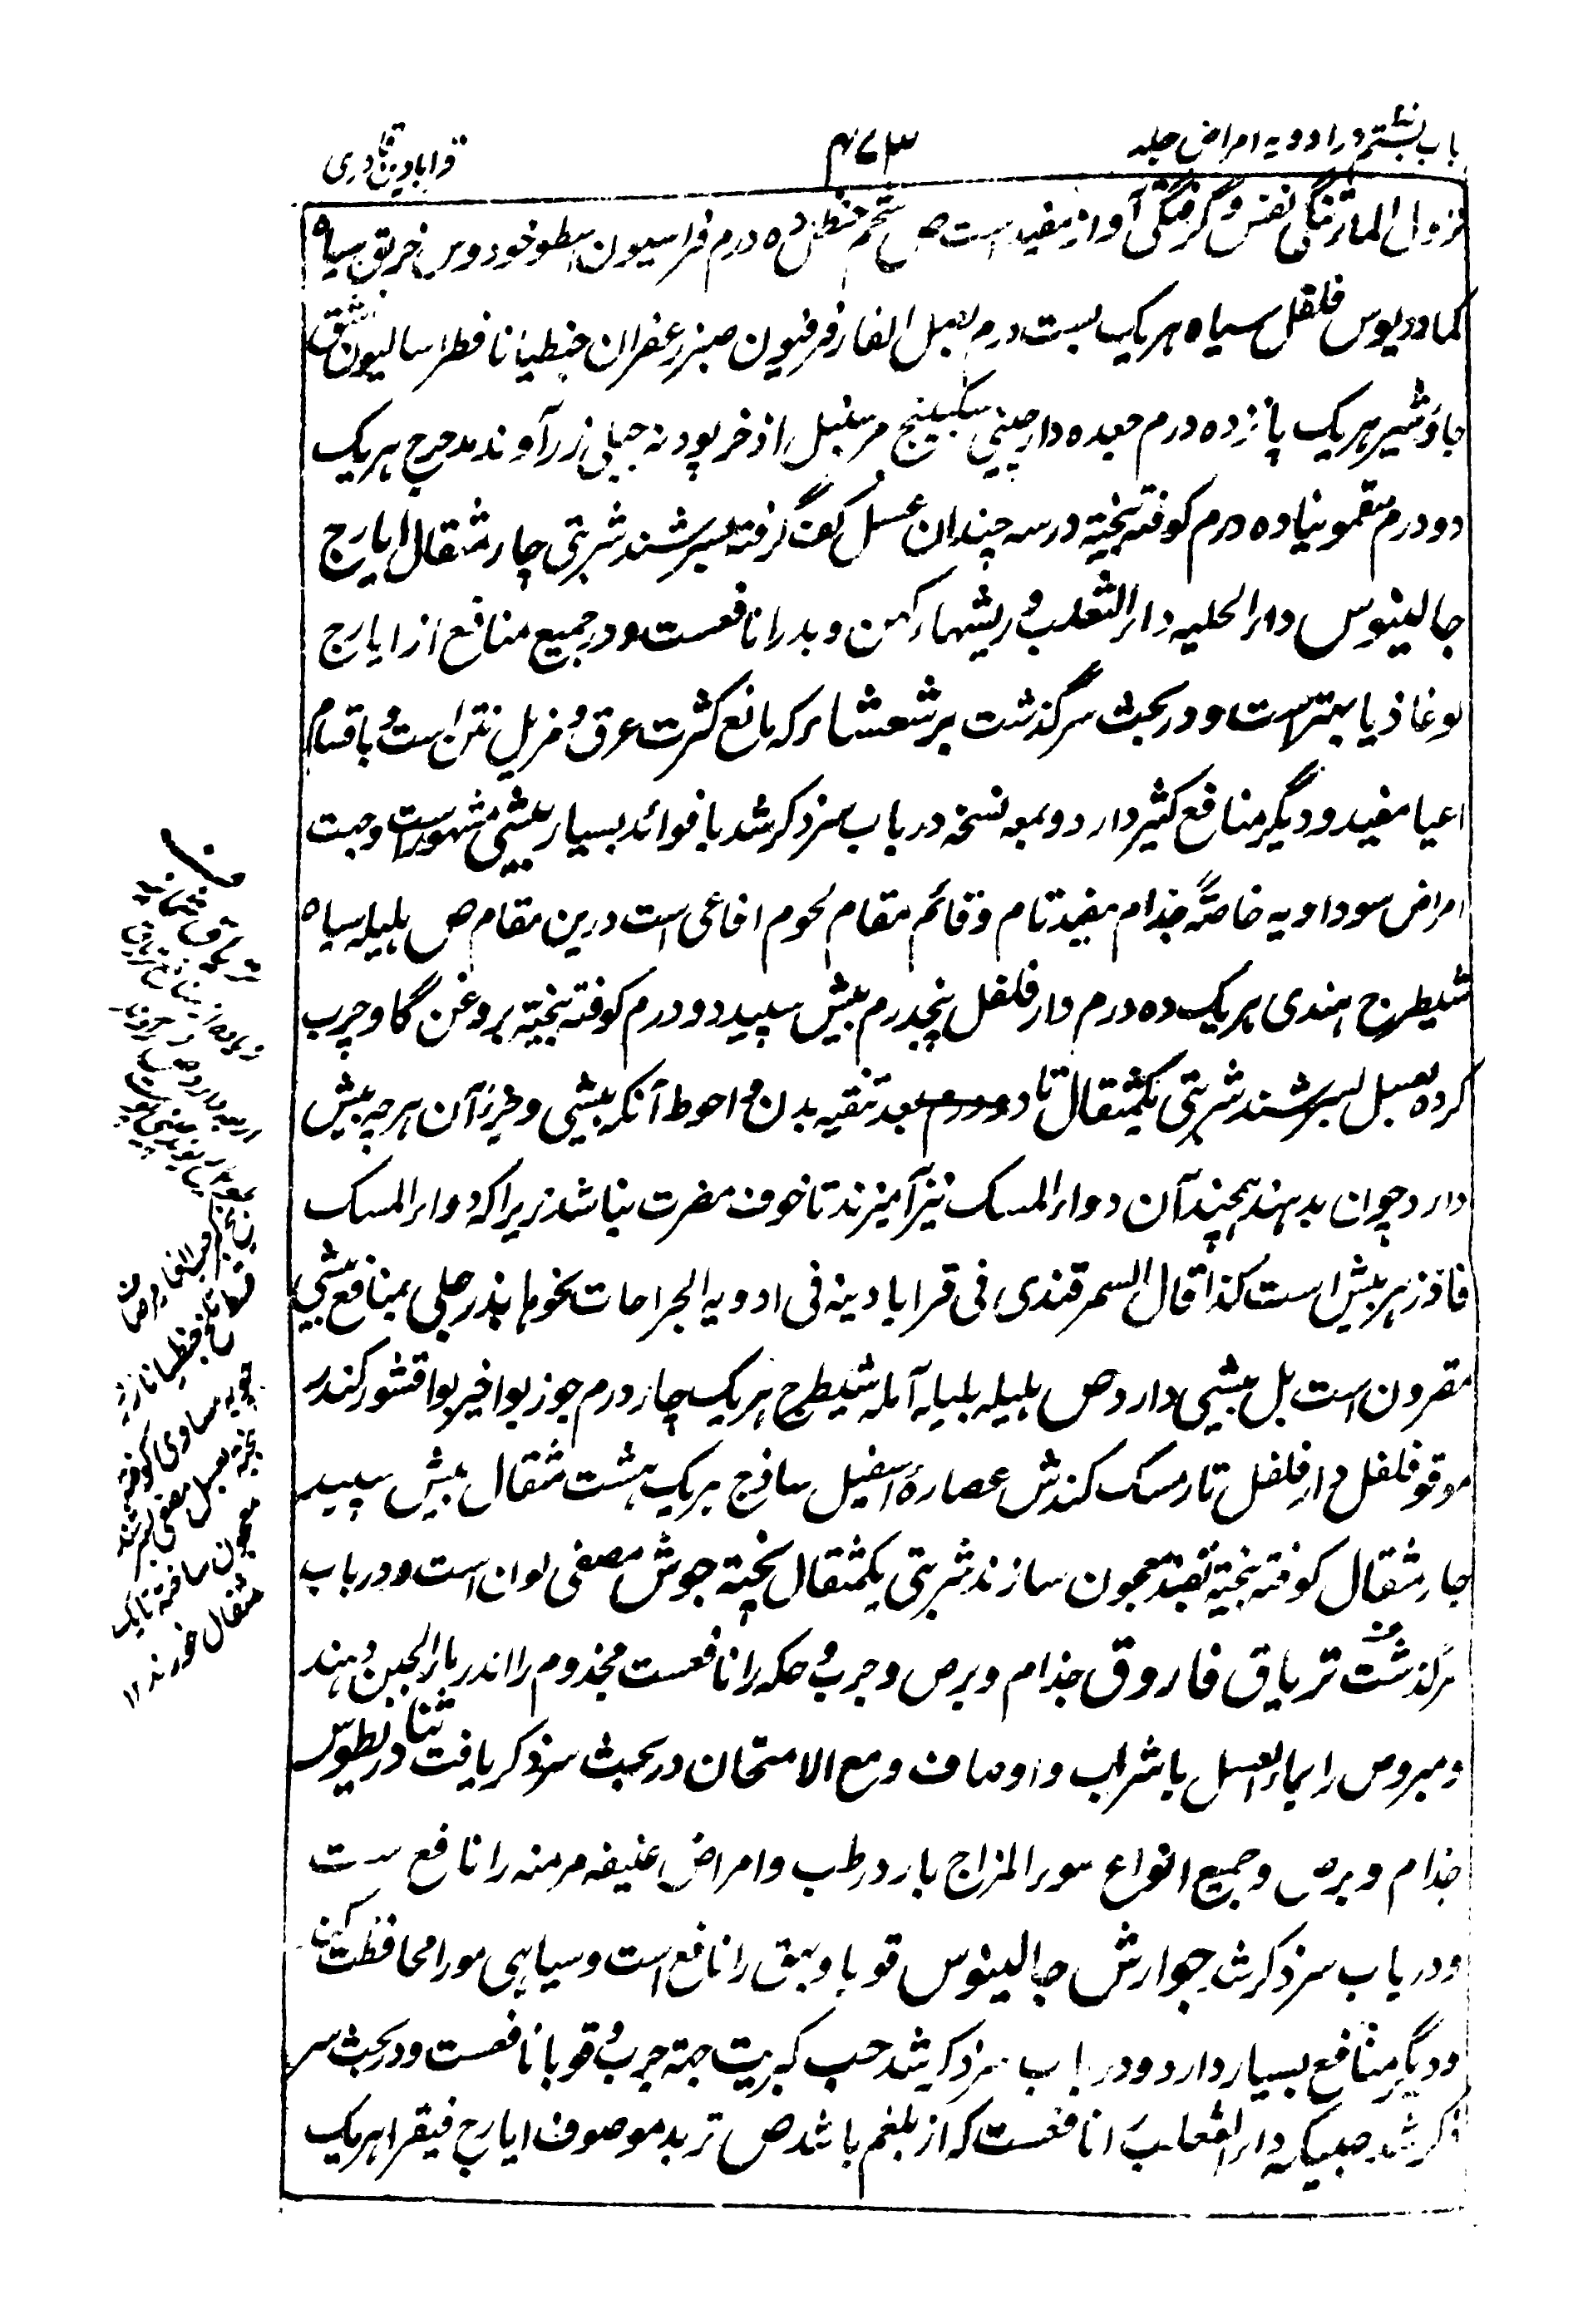 باب بستم در ادویه امراض جلد
۴۷۳
قرابادین قادری
نزول الما و تنگی نفس و گرفتگی آواز مفید است ص شحم حنظل ده درم فراسیون اسطوخودوس خربق سیاه
کمادریوس فلفل سیاه هریک بست درم بصل الفار فرفیون صبر زعفران جنطیانا فطراسالیون اشق
جاؤشیر هریک پانزده درم جعده دارچینی سکبینج مر سنبل اذخر پودنه جبلی زرآوند مدحرج هریک
دو درم سقمونیا ده درم کوفته بیخته در سه چندان عسل کف گرفته بسرشند شربتی چار مثقال ایارج
جالینوس داء الحلیه داء الثعلب و ریشهاء کهن و بد را نافعست و در جمیع منافع از ایارج
لوغاذیا بهترست و در بحث سر گذشت برشعشا برکه مانع کثرت عرق و مزیل نتن است و باقسام
اعیا مفید و دیگر منافع کثیر دارد و بمعه نسخه در باب سر ذکر شد با فوائد بسیار بیشی مشهور است و جهت
امراض سوداویه خاصةً جذام مفید تام و قائم مقام لحوم افاعی است درین مقام ص هلیله سیاه
شیطرج هندی هریک ده درم دارفلفل پنجدرم بیش سپید دو درم کوفته بیخته بروغن گاو چرب
کرده بعسل بسرشند شربتی یکمثقال تا دو درم بعد تنقیه بدن و احوط آنکه بیشی و غیر آن هرچه بیش
دارد چون بدهند همچند آن دواء المسک نیز آمیزند تا خوف مضرت نباشد زیراکه دواء المسک
فادزهر بیش است کذا قال السمرقندی فی قرابادینه فی ادویه الجراحات بخوها پذر جلی بمنافع بیشی
مقرون است بل بیشی دارد ص هلیله بلیله آمله شیطرج هریک چار درم جوز بوا خیر بوا قشور کندر
موقو فلفل دار فلفل تارمسک کندش عصارۀ اسفیل ساذج هریک هشت مثقال بیش سپید
چار مثقال کوفته بیخته بقند معجون سازند شربتی یکمثقال پخته جوش مصفی لوان است و در باب
گذشت تریاق فاروق جذام و برص و جرب و حکه را نافعست مجذوم را اندر ماء الجبن دهند
و مبروص را بماء العسل یا شراب و اوصاف و مع الامتحان در بحث سر ذکر یافت ثنادریطوس
جذام و برص و جمیع انواع سوء المزاج بارد رطب و امراض عنیفه مزمنه را نافع ست
و در باب سر ذکر شد جوارش جالینوس قوبا و بهق را نافع است و سیاهی مو را محافظت کند
و دیگر منافع بسیار دارد و در باب سر ذکر شد حب کبریت جهة جرب و قوبا نافعست و در بحث سر
ذکر شد حبیکه داء الثعلب را نافعست که از بلغم باشد ص تربد موصوف ایارج فیقرا هریک
تلخ جنطیانا
مساوی کوفته
بیخته بعسل مصفی بسرشند
معجون ساخته تا یک
مثقال خورند ۱۲